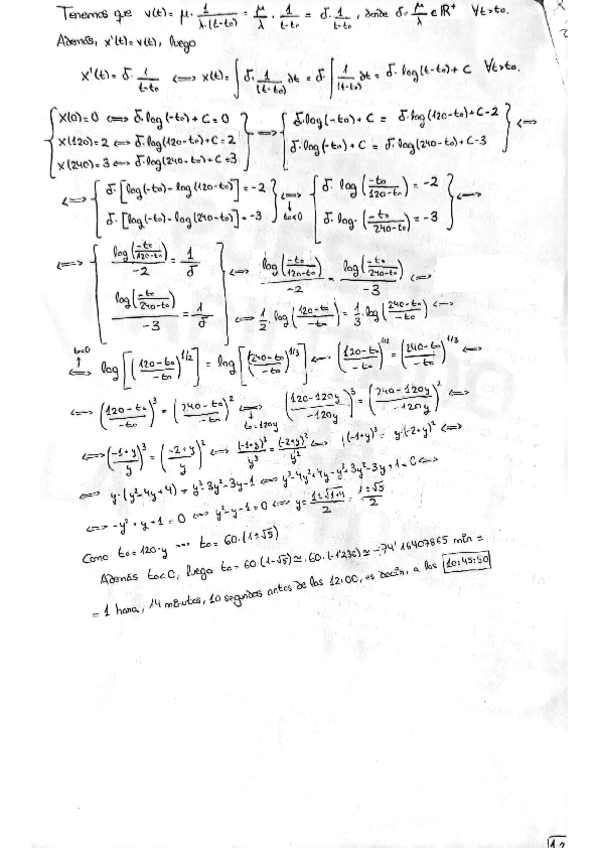 Tenemos que v(t) = μ · 1/(λ·(t-t₀)) = μ/λ · 1/(t-t₀) = δ · 1/(t-t₀), donde δ = μ/λ ∈ ℝ⁺ ∀t>t₀.
Además, x'(t) = v(t), luego
x'(t) = δ · 1/(t-t₀) ⟺ x(t) = ∫ δ · 1/(t-t₀) dt = δ ∫ 1/(t-t₀) dt = δ · log(t-t₀) + C ∀t>t₀.
{ x(0)=0 ⟺ δ·log(-t₀)+C=0
x(120)=2 ⟺ δ·log(120-t₀)+C=2
x(240)=3 ⟺ δ·log(240-t₀)+C=3 } ⟹ { δ·log(-t₀)+C = δ·log(120-t₀)+C-2
δ·log(-t₀)+C = δ·log(240-t₀)+C-3 } ⟺
⟺ { δ·[log(-t₀)-log(120-t₀)] = -2
δ·[log(-t₀)-log(240-t₀)] = -3 } ⟺ t₀<0 { δ·log(-t₀/(120-t₀)) = -2
δ·log·(-t₀/(240-t₀)) = -3 } ⟺
⟺ { log(-t₀/(120-t₀))/-2 = 1/δ
log(-t₀/(240-t₀))/-3 = 1/δ } ⟺ log(-t₀/(120-t₀))/-2 = log(-t₀/(240-t₀))/-3 ⟺
⟺ 1/2 · log((120-t₀)/-t₀) = 1/3 · log((240-t₀)/-t₀) ⟺
t₀<0 ⟺ log[((120-t₀)/-t₀)^1/2] = log[((240-t₀)/-t₀)^1/3] ⟺ ((120-t₀)/-t₀)^1/2 = ((240-t₀)/-t₀)^1/3 ⟺
⟺ ((120-t₀)/-t₀)³ = ((240-t₀)/-t₀)² ⟺ t₀=120y ((120-120y)/-120y)³ = ((240-120y)/-120y)² ⟺
⟺ ((-1+y)/y)³ = ((-2+y)/y)² ⟺ (-1+y)³/y³ = (-2+y)²/y² ⟺ (-1+y)³ = y·(-2+y)² ⟺
⟺ y·(y²-4y+4) = y³-3y²+3y-1 ⟺ y³-4y²+4y-y³+3y²-3y+1=0 ⟺
⟺ -y²+y+1=0 ⟺ y²-y-1=0 ⟺ y = (1±√(1+4))/2 = (1±√5)/2
Como t₀=120·y ⟹ t₀=60·(1±√5)
Además t₀<0, luego t₀=60·(1-√5) ≃ 60·(-1'236) ≃ -74'16407865 min =
= 1 hora, 14 minutos, 10 segundos antes de las 12:00, es decir, a las 10:45:50